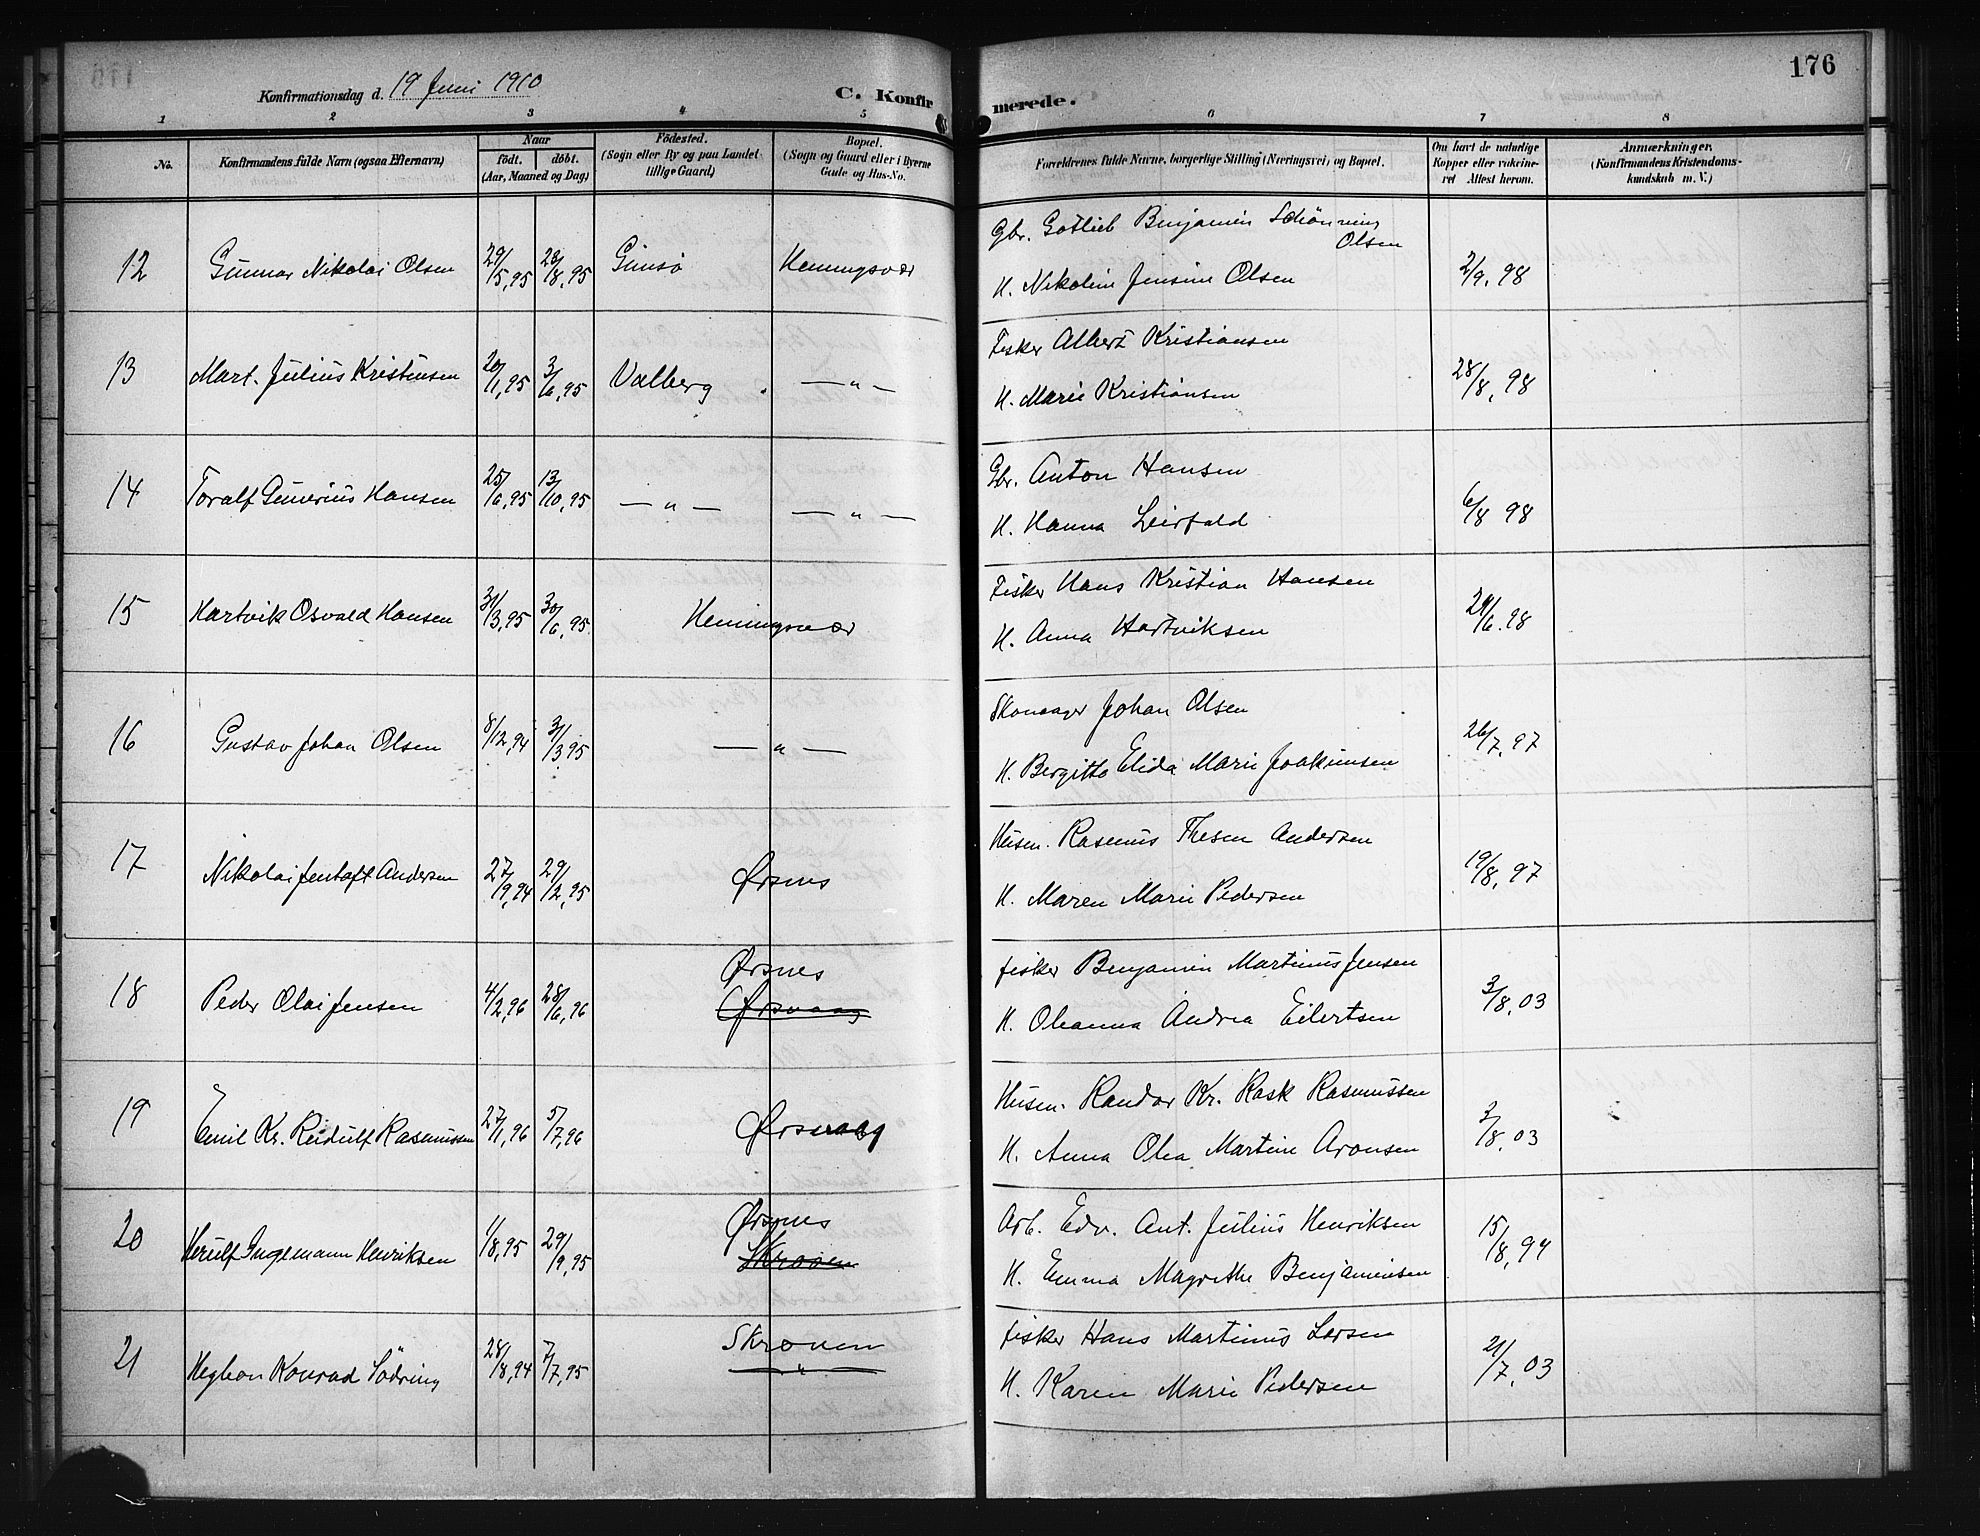 176
Konfirmationsdag d. 19 Juni 1910
C. Konfirmerede.
1 2 3 4 5 6 7 8
No. Konfirmandens fulde Navn (ogsaa Efternavn) Naar født. døbt. (Aar, Maaned og Dag) Fødested. (Sogn eller By og paa Landet tillige Gaard) Bopæl. (Sogn og Gaard eller i Byerne Gade og Hus-No. Forældrenes fulde Navne, borgerlige Stilling (Næringsvei) og Bopæl. Om havt de naturlige Kopper eller vaccineret Attest herom. Anmærkninger. (Konfirmandens Kristendomskundskab m. V.)
12 Gunnar Nikolai Olsen 29/5,95 28/8,95 Gimsø Henningsvær Gbr. Gotlieb Benjamin Schönning Olsen
H. Nikoline Jensine Olsen 2/9.98
13 Mart. Julius Kristensen 20/1,95 3/6,95 Valberg — " — Fisker Albert Kristiansen
H. Marie Kristiansen 28/8,98
14 Toralf Gunerius Hansen 25/6,95 13/10,95 — " — — " — Gbr. Anton Hansen
H. Hanna Leirfald 6/8 98
15 Hartvik Osvald Hansen 31/3,95 30/6,95 Henningsvær Fisker Hans Kristian Hansen
H. Anna Hartviksen 29/6.98
16 Gustav Johan Olsen 8/12,94 31/3,95 — " — Skomager Johan Olsen
H. Bergitte Elida Marie Joakimsen 26/7,97
17 Nikolai Jentoft Andersen 27/9,94 29/12,95 Ørsnes Husm. Rasmus Thesen Andersen
H. Maren Marie Pedersen 19/8,97
18 Peder Olai Jensen 4/2,96 28/6,96 Ørsnes
Ørsvaag
fisker Benjamin Martinus Jensen
H. Oleanna Andrea Eilertsen 3/8,03
19 Emil Kr. Reidulf Rasmussen 27/1,96 5/7,96 Ørsvaag Husm. Randor Kr. Rask Rasmussen
H. Anna Olea Martine Aronsen 3/8,03
20 Herulf Ingemann Henriksen 1/8,95 29/9,95 Ørsnes
Skroven
Arb. Edv. Ant. Julius Henriksen
H. Emma Magrethe Benjaminsen 15/8,94
21 Hegbon Konrad Södring 28/8,94 7/7,95 Skroven
— " —
fisker Hans Martinus Larsen
H. Karen Marie Pedersen 21/7,03